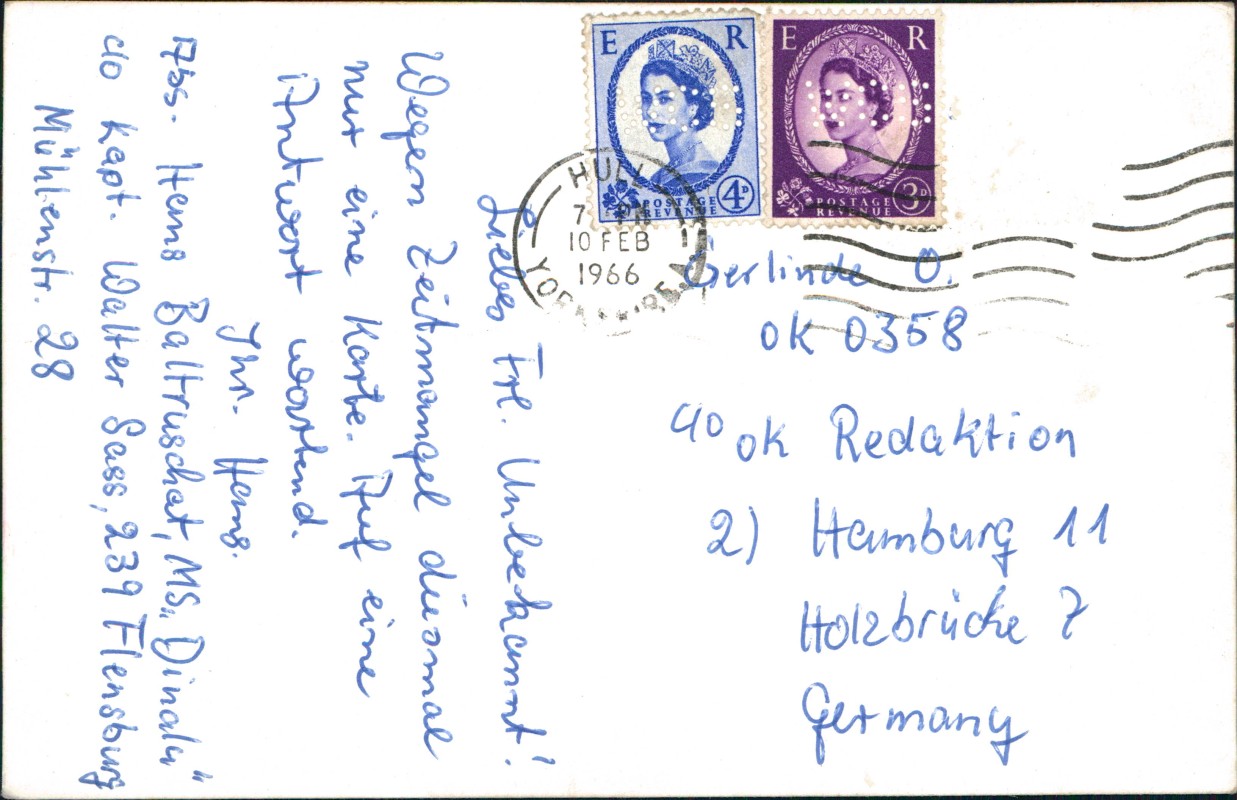 E R
POSTAGE
REVENUE
4D
E R
POSTAGE
REVENUE
3D
HULL
7
10 FEB
1966
Liebes Frl. Unbekannt!
Wegen Zeitmangel diesmal
nur eine Karte. Auf eine
Antwort wartend.
Ihr. Hans.
Abs. Hans Baltruschat, MS „Dinah“
c/o Kapt. Walter Sass, 239 Flensburg
Mühlenstr. 28
Gerlinde O.
ok 0358
c/o ok Redaktion
2) Hamburg 11
Holzbrücke 7
Germany